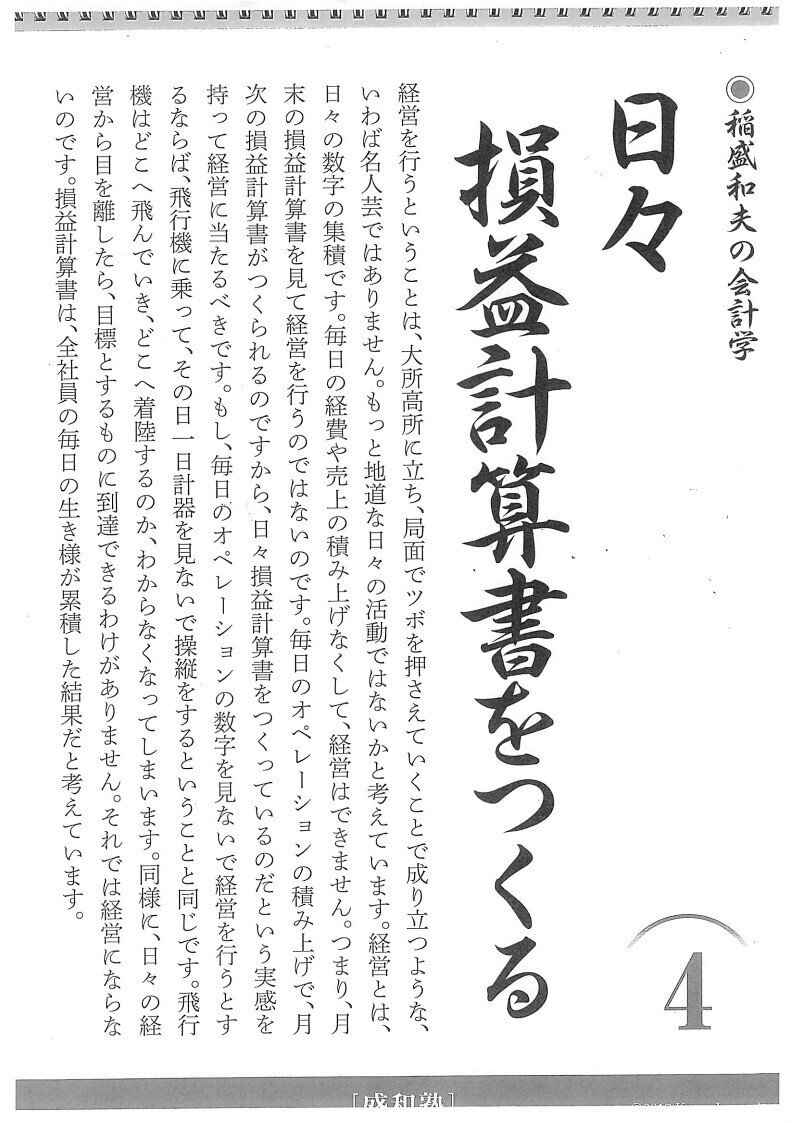 稲盛和夫の会計学
日々
損益計算書をつくる
経営を行うということは、大所高所に立ち、局面でツボを押さえていくことで成り立つような、
いわば名人芸ではありません。もっと地道な日々の活動ではないかと考えています。経営とは、
日々の数字の集積です。毎日の経費や売上の積み上げなくして、経営はできません。つまり、月
末の損益計算書を見て経営を行うのではないのです。毎日のオペレーションの積み上げで、月
次の損益計算書がつくられるのですから、日々損益計算書をつくっているのだという実感を
持って経営に当たるべきです。もし、毎日のオペレーションの数字を見ないで経営を行うとす
るならば、飛行機に乗って、その日一日計器を見ないで操縦をするということと同じです。飛行
機はどこへ飛んでいき、どこへ着陸するのか、わからなくなってしまいます。同様に、日々の経
営から目を離したら、目標とするものに到達できるわけがありません。それでは経営にならな
いのです。損益計算書は、全社員の毎日の生き様が累積した結果だと考えています。
4
[盛和塾]